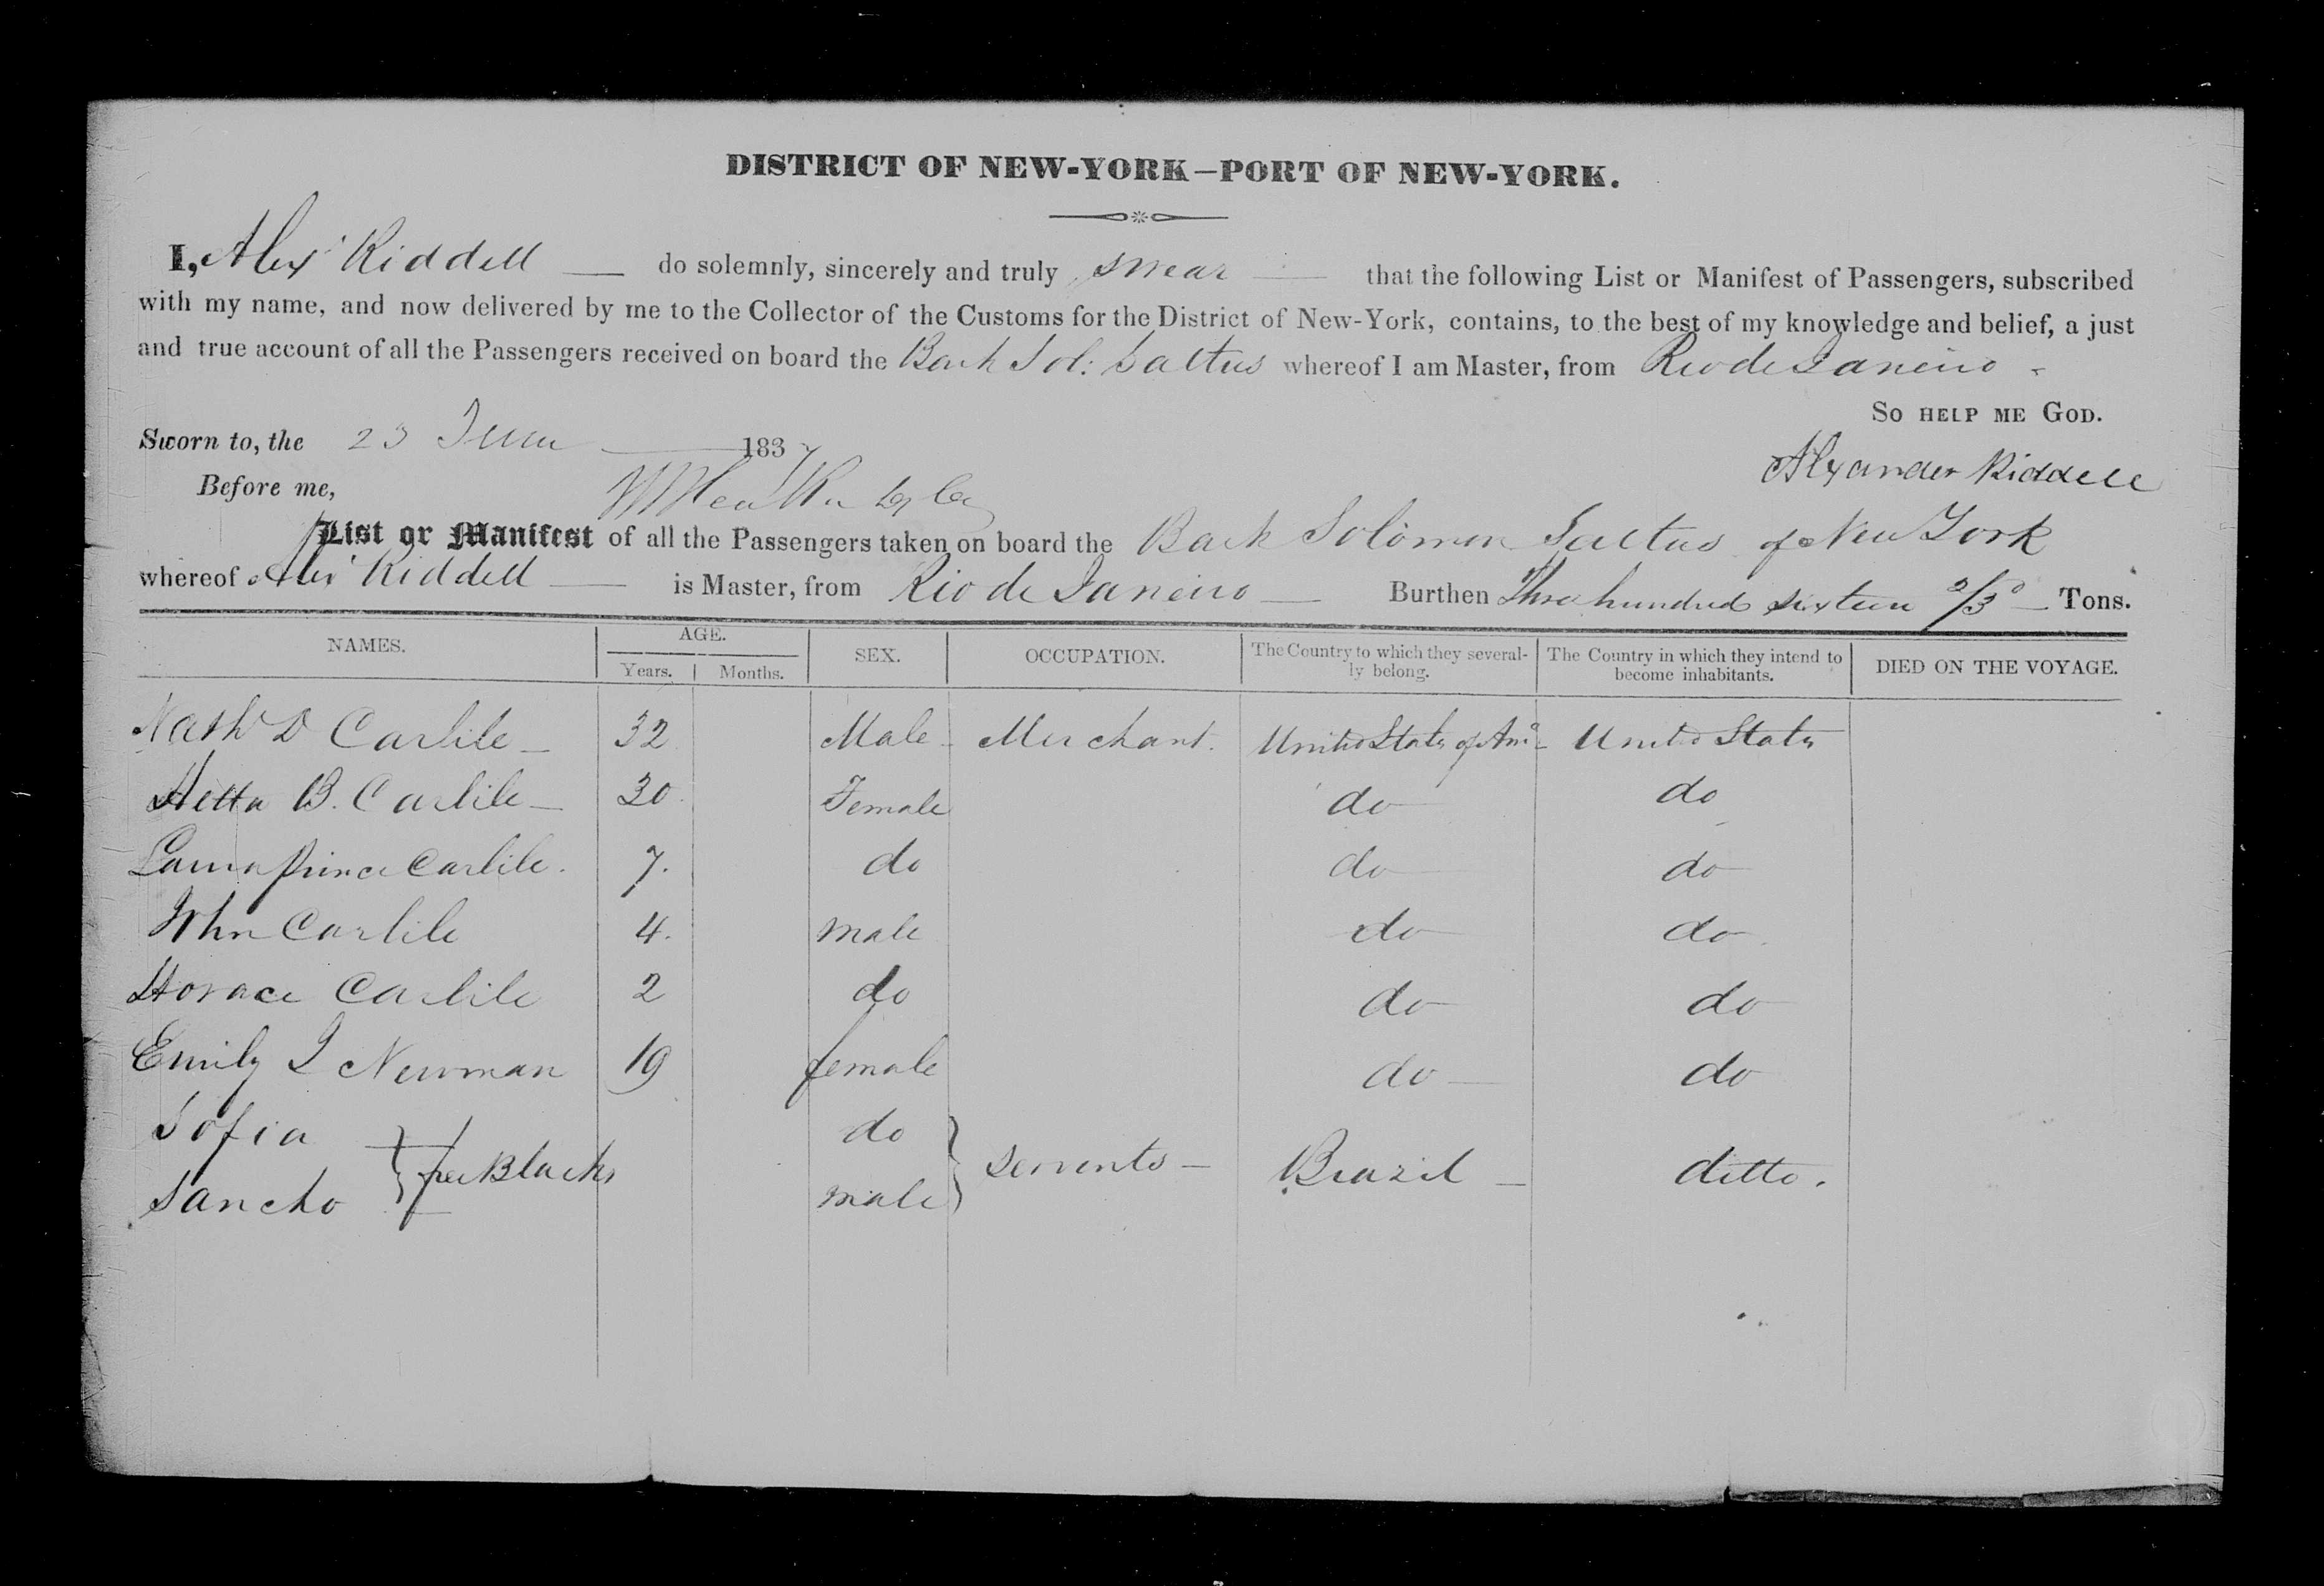 DISTRICT OF NEW-YORK—PORT OF NEW-YORK.
I, Alexr Riddell — do solemnly, sincerely and truly swear — that the following List or Manifest of Passengers, subscribed
with my name, and now delivered by me to the Collector of the Customs for the District of New-York, contains, to the best of my knowledge and belief, a just
and true account of all the Passengers received on board the Bark Sol: Saltus whereof I am Master, from Rio de Janeiro -
So HELP ME GOD.
Sworn to, the 23 June — 1837
Alexander Riddell
Before me,
List or Manifest of all the Passengers taken on board the Bark Solomon Saltus of New York
whereof Alexr Riddell — is Master, from Rio de Janeiro — Burthen Three hundred sixteen 2/3 — Tons.
NAMES. AGE. SEX. OCCUPATION. The Country to which they several- The Country in which they intend to DIED ON THE VOYAGE.
Years. Months. ly belong. become inhabitants.
D Carlile — 32 Male - Merchant. United States of Ama - United States
Hetta B. Carlile — 30. Female do do
Laura Prince Carlile. 7. do do do
John Carlile 4. male do do.
Horace Carlile 2 do do do
Emily L Newman 19 female do — do
Sofia do
} free Blacks } servants — Brazil — ditto.
Sancho male